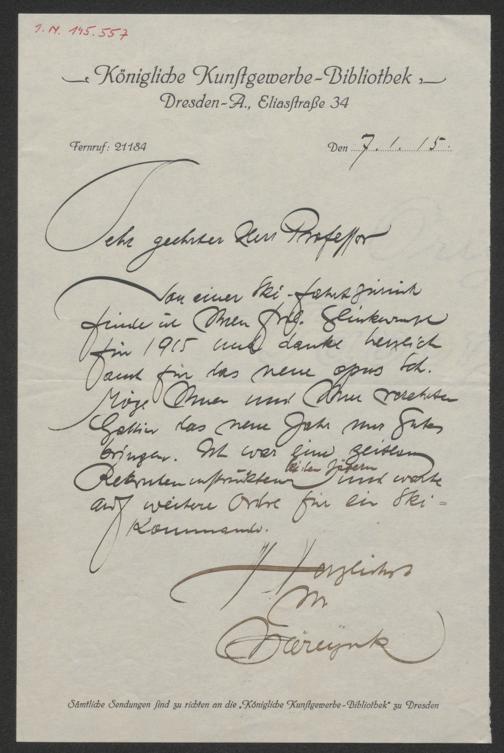 I.N. 145.557
Königliche Kunstgewerbe-Bibliothek
Dresden-A., Eliasstraße 34
Fernruf: 21184
Den 7.1.15.
Sehr geehrter Herr Professor
Von einer Ski-fahrt zurück
finde ich Ihren frdl. Glückwunsch
für 1915 und danke herzlich
auch für das neue opus
Möge Ihnen und Ihrer verehrten
Gattin das neue Jahr nur Gutes
bringen. Ich war
bei den Jägern
Rekruten und warte
auf weitere Ordre für ein Ski-
Kommando.
Herzlichst
Ihr
Sämtliche Sendungen sind zu richten an die „Königliche Kunstgewerbe-Bibliothek" zu Dresden